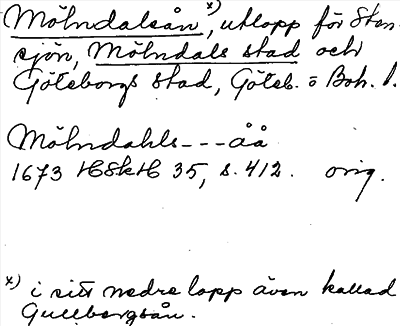 Mölndalsån x), utlopp för Sten-
sjön, Mölndals stad och
Göteborgs stad, Göteb. o Boh. l.
Mölndahls---åå
1673 HSkH 35, s. 412. orig.
x) i sitt nedre lopp även kallad
Gullbergsån.